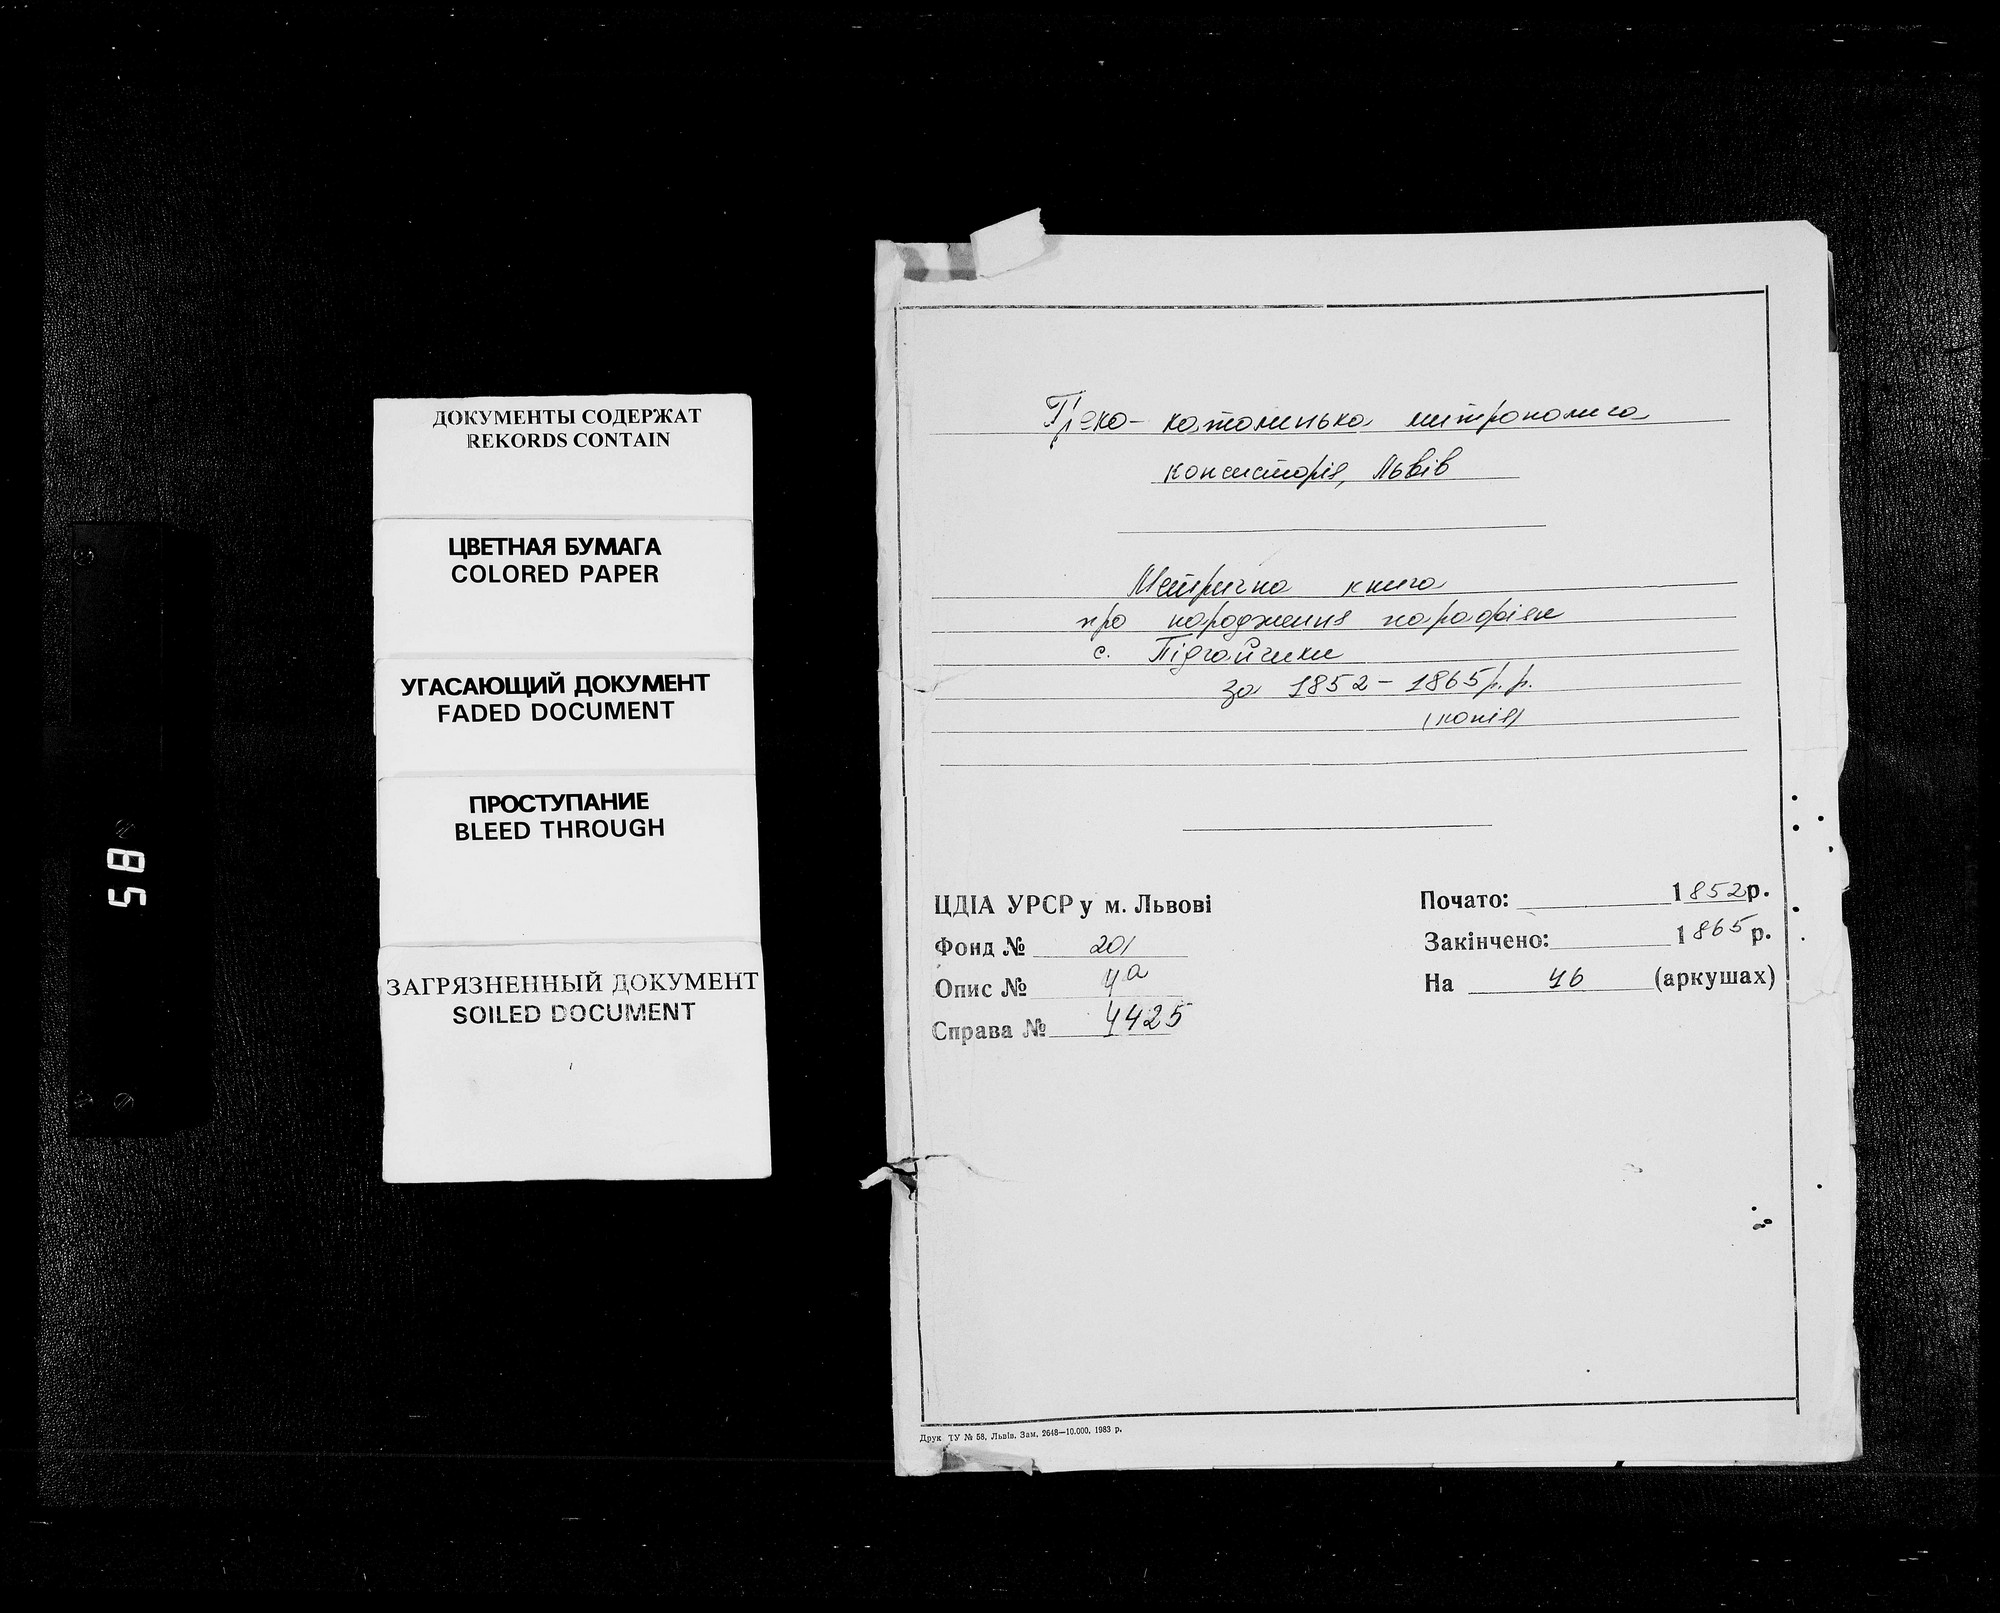 ДОКУМЕНТЫ СОДЕРЖАТ
REKORDS CONTAIN
ЦВЕТНАЯ БУМАГА
COLORED PAPER
УГАСАЮЩИЙ ДОКУМЕНТ
FADED DOCUMENT
ПРОСТУПАНИЕ
BLEED THROUGH
ЗАГРЯЗНЕННЫЙ ДОКУМЕНТ
SOILED DOCUMENT
58
Греко-католицька митрополича
консисторія, Львів
Метрична книга
про народження парафіян
с. Підгайчики
за 1852-1865 р.р.
(копія)
ЦДІА УРСР у м. Львові
Фонд № 201
Опис № 4а
Справа № 4425
Почато: 1852 р.
Закінчено: 1865 р.
На 46 (аркушах)
Друк ТУ № 58, Львів. Зам. 2648—10.000. 1983 р.